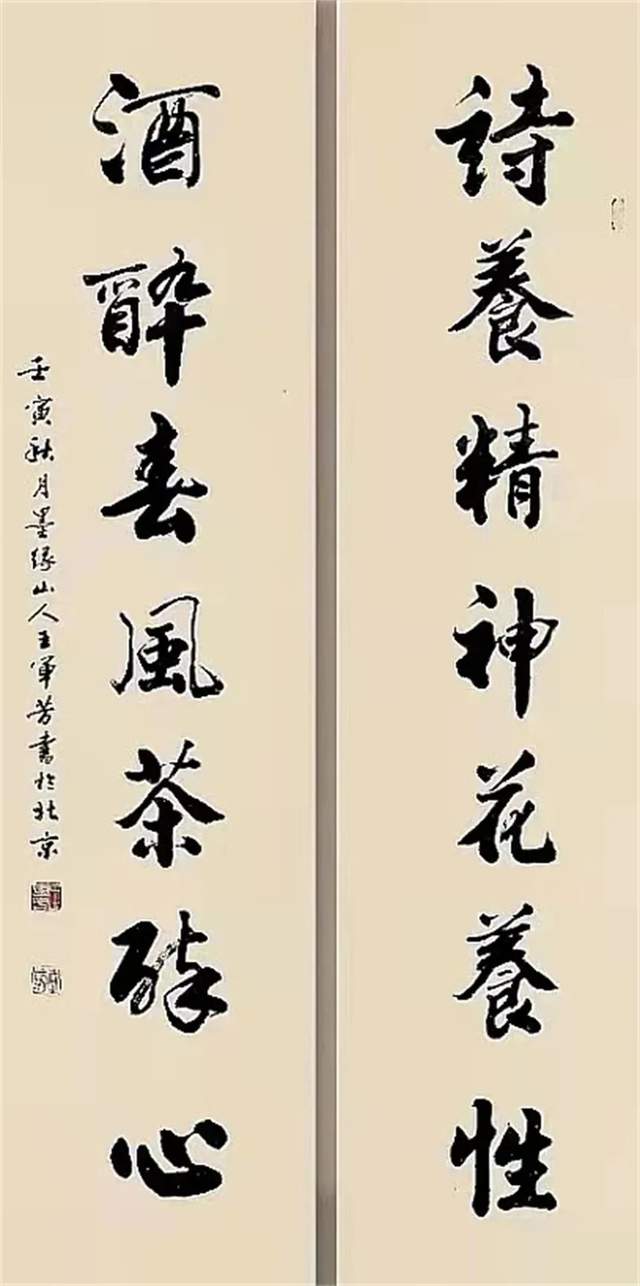 詩養精神花養性
酒酔春風茶酔心
壬寅秋月墨緣山人王軍芳書於北京